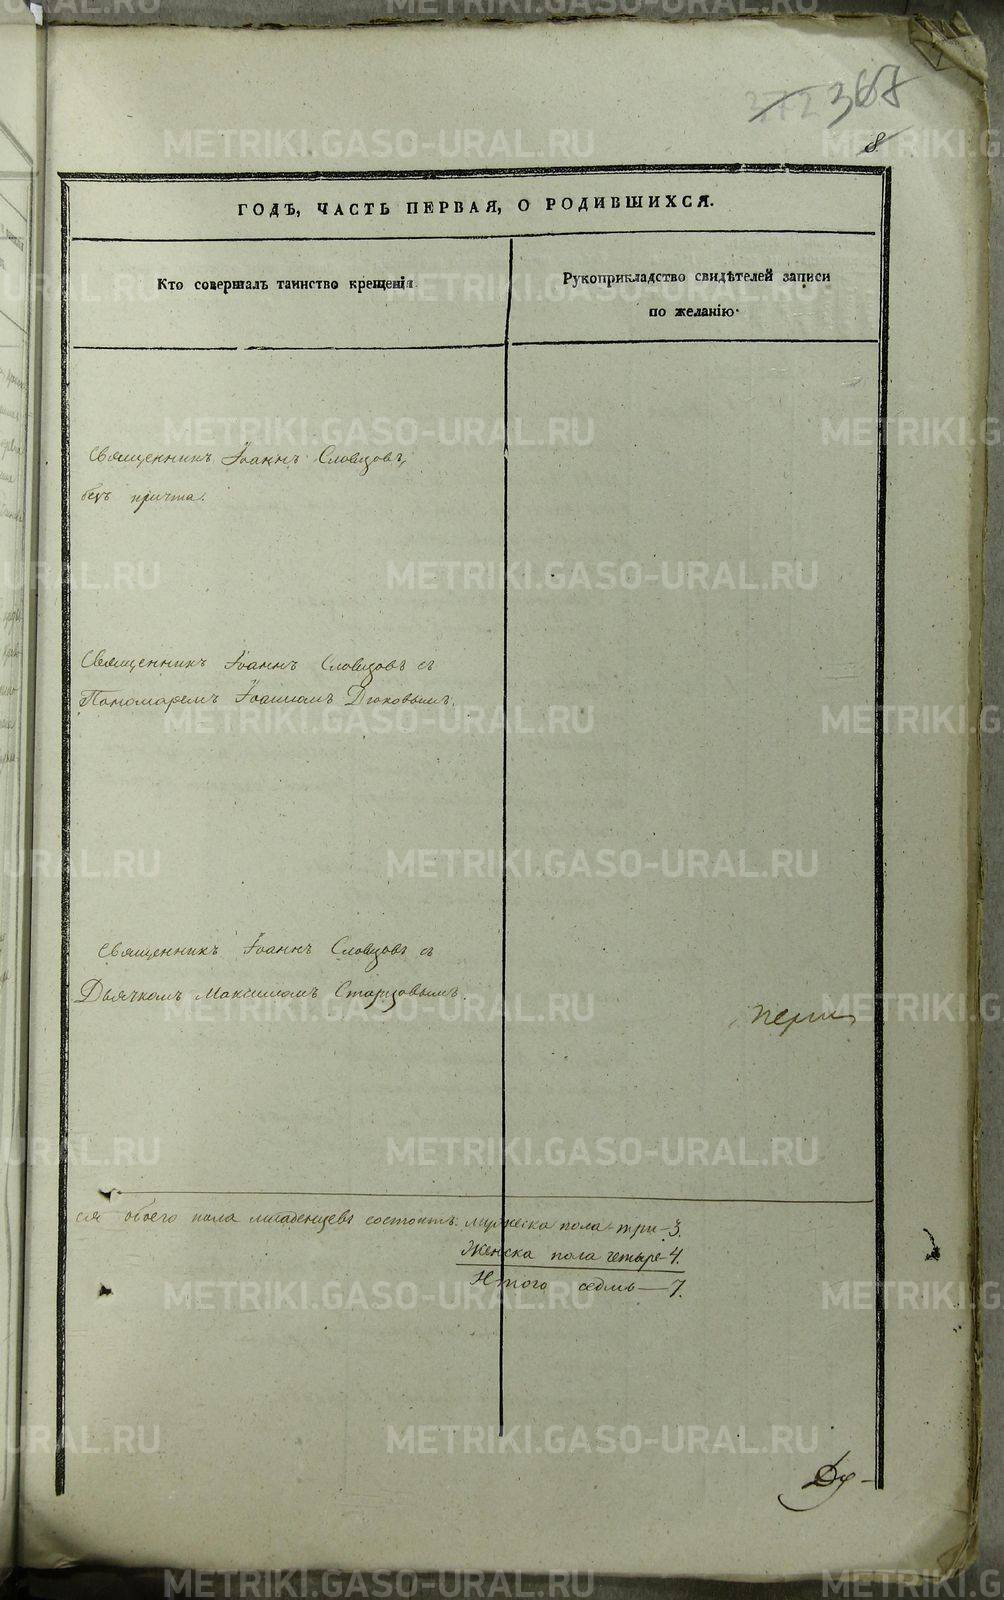 372 367
8
ГОДЪ, ЧАСТЬ ПЕРВАЯ, О РОДИВШИХСЯ.
Кто совершалъ таинство крещенія
Рукоприкладство свидѣтелей записи
по желанію
Священникъ Іоаннъ Словцовъ,
безъ причта.
Священникъ Іоаннъ Словцовъ съ
Пономаремъ Іоанномъ Дюковымъ.
Священникъ Іоаннъ Словцовъ съ
Дьячкомъ Максимомъ Старцовымъ.
ся обоего пола младенцевъ состоитъ: мужеска пола три - 3.
Женска пола четыре - 4.
Итого седмь — 7.
METRIKI.GASO-URAL.RU